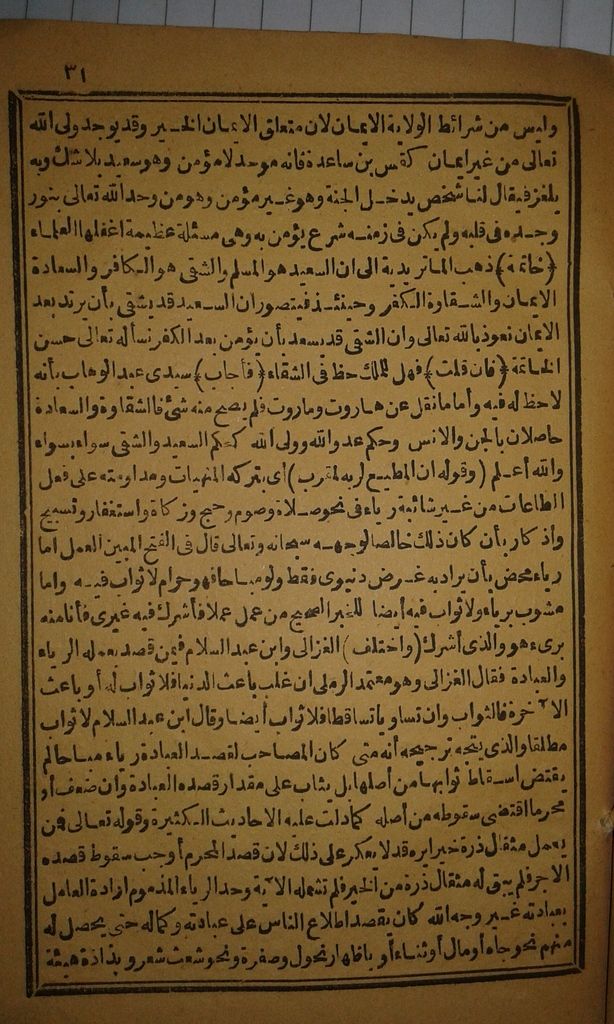 ٣١
وليس من شرائط الولاية الايمان لان متعلق الايمان الخبر وقد يوجد ولى الله
تعالى من غير ايمان كقس بن ساعدة فانه موحد لا مؤمن وهو سعيد بلا شك وبه
يلغز فيقال لنا شخص يدخل الجنة وهو غير مؤمن وهو من وحد الله تعالى بنور
وجده فى قلبه ولم يكن فى زمنه شرع يؤمن به وهى مسئلة عظيمة اغفلها العلماء
(خاتمة) ذهب الماتريدية الى ان السعيد هو المسلم والشقى هو الكافر والسعادة
الايمان والشقاوة الكفر وحينئذ فيتصور ان السعيد قد يشقى بأن يرتد بعد
الايمان نعوذ بالله تعالى وان الشقى قد يسعد بأن يؤمن بعد الكفر نسأله تعالى حسن
الخاتمة (فان قلت) فهل للملك حظ فى الشقاء (فأجاب) سيدى عبد الوهاب بأنه
لا حظ له فيه وأما ما نقل عن هاروت وماروت فلم يصح منه شئ فالشقاوة والسعادة
حاصلان بالجن والانس وحكم عدو الله وولى الله كحكم السعيد والشقى سواء بسواء
والله أعلم (وقوله ان المطيع لربه لمقرب) أى بتركه المنهيات ومداومته على فعل
الطاعات من غير شائبة رياء فى نحو صلاة وصوم وحج وزكاة واستغفار وتسبيح
واذكار بأن كان ذلك خالصا لوجهه سبحانه وتعالى قال فى الفتح المبين العمل اما
رياء محض بأن يراد به غرض دنيوى فقط ولو مباحا فهو حرام لا ثواب فيه واما
مشوب برياء ولا ثواب فيه أيضا للخبر الصحيح من عمل عملا فأشرك فيه غيرى فأنا منه
برىء هو والذى أشرك (واختلف) الغزالى وابن عبد السلام فيمن قصد بعمله الرياء
والعبادة فقال الغزالى وهو معتمد الرملى ان غلب باعث الدنيا فلا ثواب له أو باعث
الآخرة فالثواب وان تساويا تساقطا فلا ثواب أيضا وقال ابن عبد السلام لا ثواب
مطلقا والذى يتجه ترجيحه أنه متى كان المصاحب لقصد العبادة رياء مباحا لم
يقتض اسقاط ثوابها من أصلها بل يثاب على مقدار قصده العبادة وان ضعف أو
محرما اقتضى سقوطه من أصله كما دلت عليه الاحاديث الكثيرة وقوله تعالى فمن
يعمل مثقال ذرة خيرا يره قد لا يعكر على ذلك لان قصد المحرم أوجب سقوط قصده
الاجر فلم يبق له مثقال ذرة من الخير فلم تشمله الآية وحد الرياء المذموم ارادة العامل
بعبادته غير وجه الله كان يقصد اطلاع الناس على عبادته وكماله حتى يحصل له
منهم نحو جاه أو مال أو ثناء أو باظهار نحول وصفرة ونحو شعث شعر وبذاذة هيئة